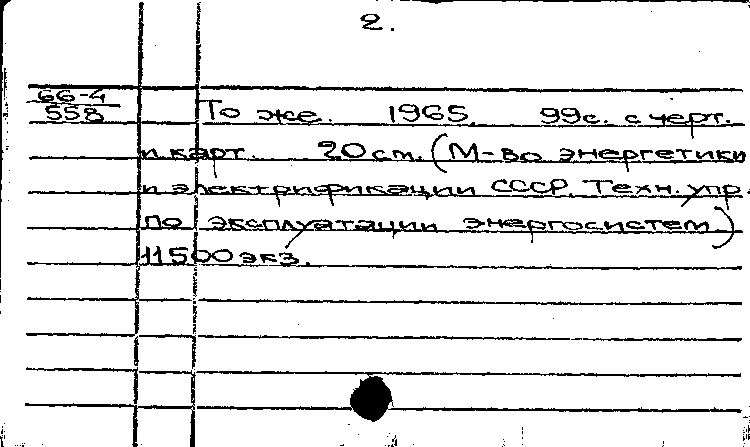 2.
66-4
558
То же. 1965. 99с. с черт.
и карт. 20 см. (М-во энергетики
и электрификации СССР. Техн. упр.
по эксплуатации энергосистем.)
11500 экз.